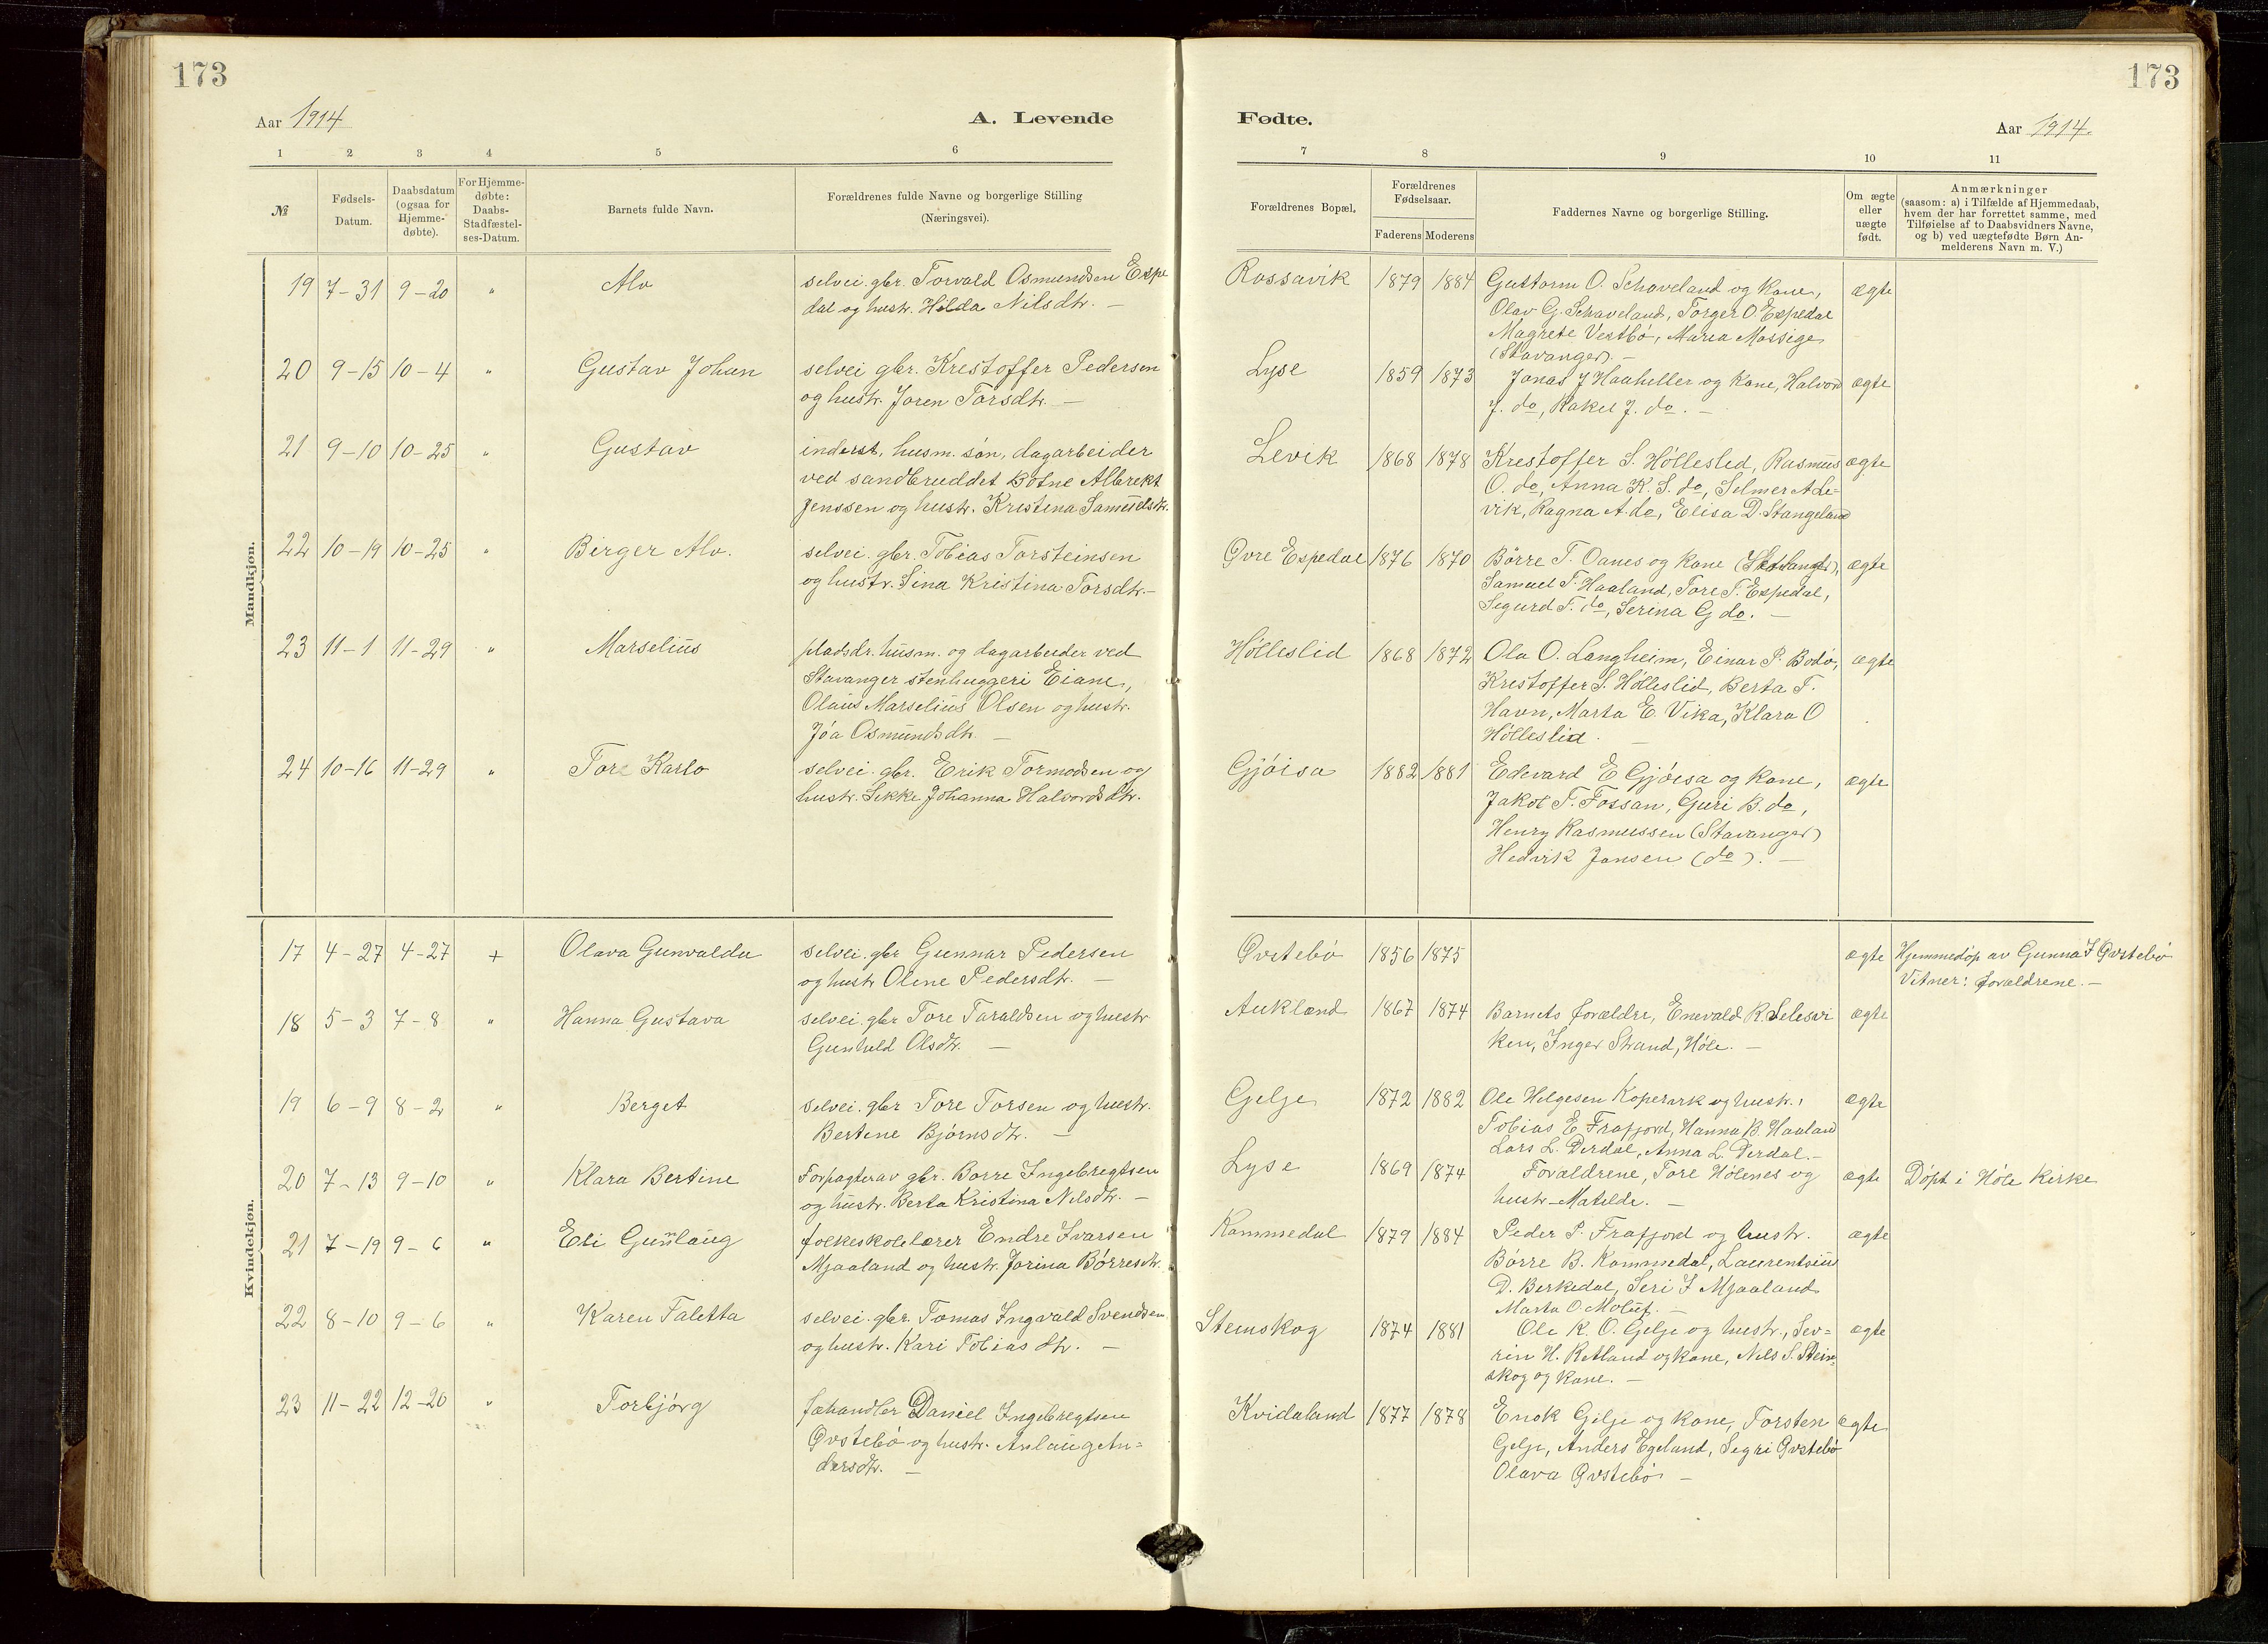 173
173
Aar 1914
A. Levende
Fødte.
Aar 1914.
1 2 3 4 5 6 7 8 9 10 11
№
Fødsels-
Datum.
Daabsdatum
(ogsaa for
Hjemme-
døbte).
For Hjemme-
døbte:
Daabs-
Stadfæstel-
ses-Datum.
Barnets fulde Navn.
Forældrenes fulde Navne og borgerlige Stilling
(Næringsvei).
Forældrenes Bopæl.
Forældrenes
Fødselsaar.
Faderens Moderens
Faddernes Navne og borgerlige Stilling.
Om ægte
eller
uægte
født.
Anmærkninger
(saasom: a) i Tilfælde af Hjemmedaab,
hvem der har forrettet samme, med
Tilføielse af to Daabsvidners Navne,
og b) ved uægtefødte Børn An-
melderens Navn m. V.)
Mandkjøn.
19 7-31 9-20 " Alv
selvei. gbr. Torvald Osmundsen Espe
dal og hustr. Hilda Nilsdtr. —
Rossavik 1879 1884
Guttorm O. Schaveland og Kone,
Olav G. Schaveland, Torger O. Espedal
Magrete Vestbö, Maria Mossige
(Stavanger). —
ægte
20 9-15 10-4 " Gustav Johan
selvei gbr. Krestoffer Pedersen
og hustr. Joren Torsdtr. —
Lyse 1859 1873
Jonas J Haaheller og Kone, Halvor
J. do, Rakel J. do. —
ægte
21 9-10 10-25 " Gustav
inderst, husm. søn, dagarbeider
ved sandbruddet Botne Albrekt
Jenssen og hustr. Kristina Samuelsdtr.
Levik 1868 1878
Krestoffer S. Hölleslid, Rasmus
O. do, Anna K. S. do, Selmer A Le-
vik, Ragna A. do, Elisa D. Stangeland
ægte
22 10-19 10-25 " Birger Alv.
selvei. gbr. Tobias Torsteinsen
og hustr. Sina Kristina Torsdtr. —
Øvre Espedal 1876 1870
Börre T. Oanes og Kone
Samuel T. Haaland, Tore T. Espedal,
Segurd T. do, Serina G do. —
ægte
23 11-1 11-29 " Marselius
pladsdr. husm. og dagarbeider ved
Stavanger stenhuggeri Eiane,
Olaus Marselius Olsen og hustr.
Jóa Osmundsdtr. —
Hölleslid 1868 1872
Ola O. Langheim, Einar P. Bodö,
Krestoffer S. Hölleslid, Berta T.
Havn, Marta E. Vika, Klara O
Hölleslid. —
ægte
24 10-16 11-29 " Tore Karlo
selvei. gbr. Erik Tormodsen og
hustr. Sikke Johanna Halvordsdtr.
Gjöisa 1882 1881
Edevard E Gjöisa og Kone,
Jakob T. Fossan, Guri B. do,
Henry Rasmussen (Stavanger)
Hedvik Jansen (do). —
ægte
Kvindekjøn.
17 4-27 4-27 + Olava Gunvalda
selvei. gbr Gunnar Pedersen
og hustr Oline Pedersdtr. —
Øvstebö 1856 1875
ægte
Hjemmedöp av Gunna J Øvstebö
Vitner: forældrene. —
18 5-3 7-8 " Hanna Gustava
selvei. gbr Tore Taraldsen og hustr
Gunhild Olsdtr. —
Aukland 1867 1874
Barnets forældre, Enevald R. Selesvi
ken, Inger Strand, Höle. —
ægte
19 6-9 8-2 " Berget
selvei. gbr Tore Torsen og hustr.
Bertine Björnsdtr. —
Gelje 1872 1882
Ole Helgesen Kopervik og hustr.,
Tobias E. Frafjord, Hanna B. Haaland
Lars L. Dirdal, Anna L. Dirdal. —
ægte
20 7-13 9-10 " Klara Bertine
Forpagter av gbr. Borre Ingebregtsen
og hustr. Berta Kristina Nilsdtr. —
Lyse 1869 1874
Forældrene, Tore Hölenes og
hustr. Matilde. —
ægte
Döpt i Höle Kirke
21 7-19 9-6 " Eli Gunlaug
folkeskolelærer Endre Ivarsen
Mjaaland og hustr. Jorina Börresdtr.
Kommedal 1879 1884
Peder P. Frafjord og hustr.
Börre B. Kommedal, Laurentsius
D. Berkedal, Seri I Mjaaland
Marta O Moluf. —
ægte
22 8-10 9-6 " Karen Taletta
selvei. gbr. Tomas Ingvald Svendsen
og hustr. Kari Tobiasdtr. —
Stenskog 1874 1881
Ole K. O. Gelje og hustr., Sev-
rin H. Retland og kone, Nils S. Stein
skog og Kone. —
ægte
23 11-22 12-20 " Torbjörg
fæhandler Daniel Ingebregtsen
Øvstebö og hustr. Aslaug An-
dersdtr. —
Kvidaland 1877 1878
Enok Gilje og Kone, Torsten
Gelje, Anders Egeland, Segri Øvstebö
Olava Øvstebö —
ægte